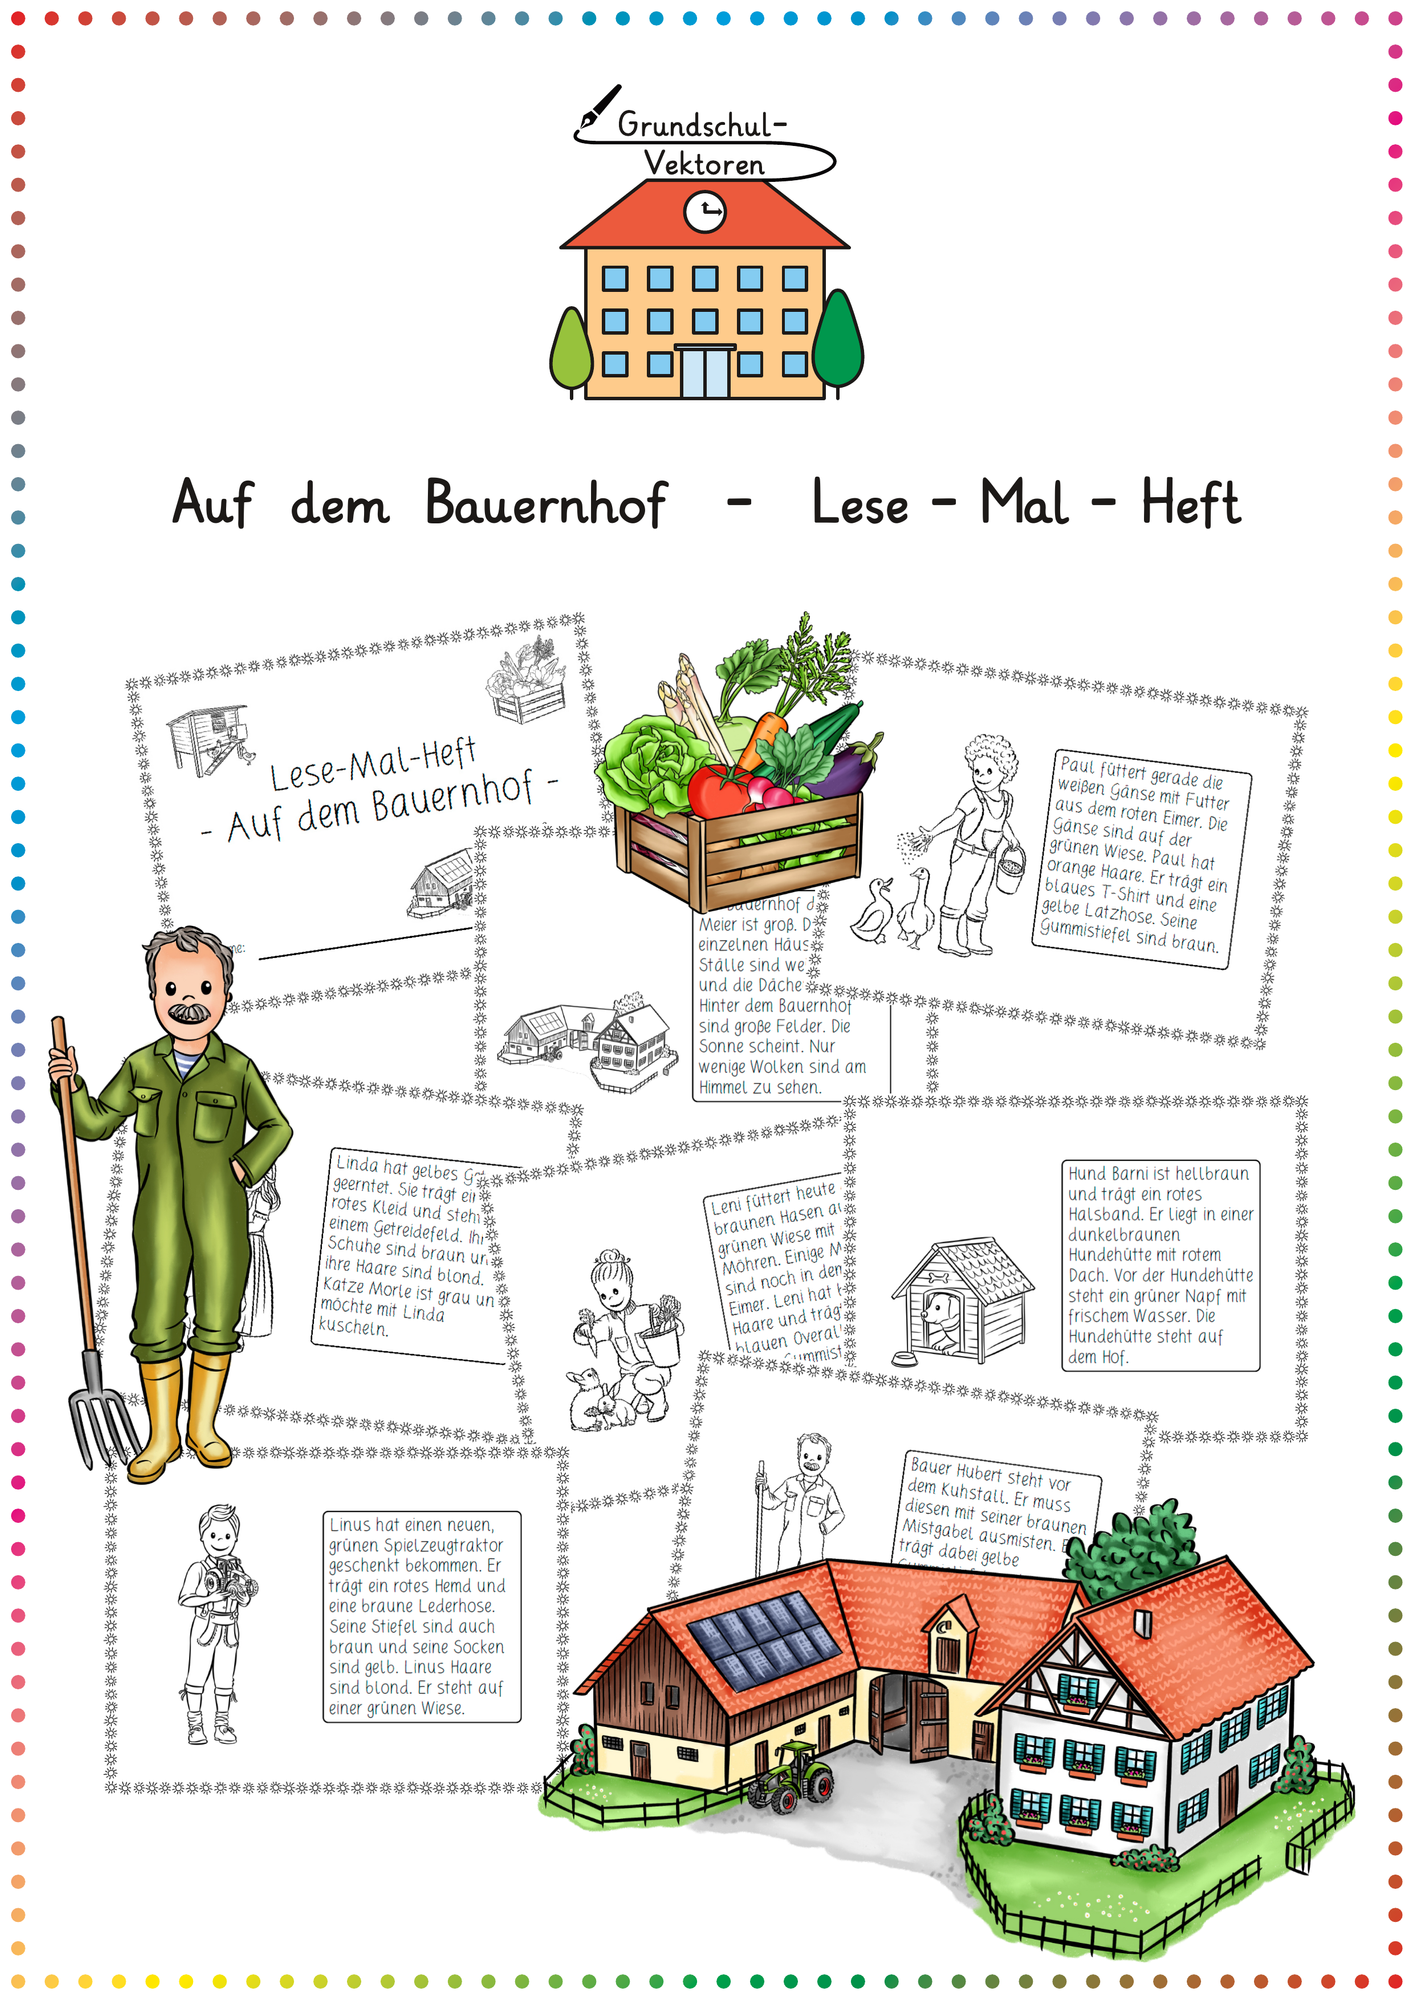 Grundschul-
Vektoren
Auf dem Bauernhof - Lese - Mal - Heft
Lese-Mal-Heft
- Auf dem Bauernhof -
Meier ist groß.
einzelnen
Ställe sind
und die
Hinter dem Bauernhof
sind große Felder. Die
Sonne scheint. Nur
wenige Wolken sind am
Himmel zu sehen.
Paul füttert gerade die
weißen Gänse mit Futter
aus dem roten Eimer. Die
Gänse sind auf der
grünen Wiese. Paul hat
orange Haare. Er trägt ein
blaues T-Shirt und eine
gelbe Latzhose. Seine
Gummistiefel sind braun.
Linda hat gelbes
geerntet. Sie trägt
rotes Kleid und
einem Getreidefeld.
Schuhe sind braun
ihre Haare sind blond.
Katze Morle ist grau
möchte mit Linda
kuscheln.
Leni füttert heute
braunen Hasen
grünen Wiese mit
Möhren. Einige
sind noch in
Eimer. Leni hat
Haare und
blauen
Hund Barni ist hellbraun
und trägt ein rotes
Halsband. Er liegt in einer
dunkelbraunen
Hundehütte mit rotem
Dach. Vor der Hundehütte
steht ein grüner Napf mit
frischem Wasser. Die
Hundehütte steht auf
dem Hof.
Bauer Hubert steht vor
dem Kuhstall. Er muss
diesen mit seiner braunen
Mistgabel ausmisten.
trägt dabei gelbe
Linus hat einen neuen,
grünen Spielzeugtraktor
geschenkt bekommen. Er
trägt ein rotes Hemd und
eine braune Lederhose.
Seine Stiefel sind auch
braun und seine Socken
sind gelb. Linus Haare
sind blond. Er steht auf
einer grünen Wiese.